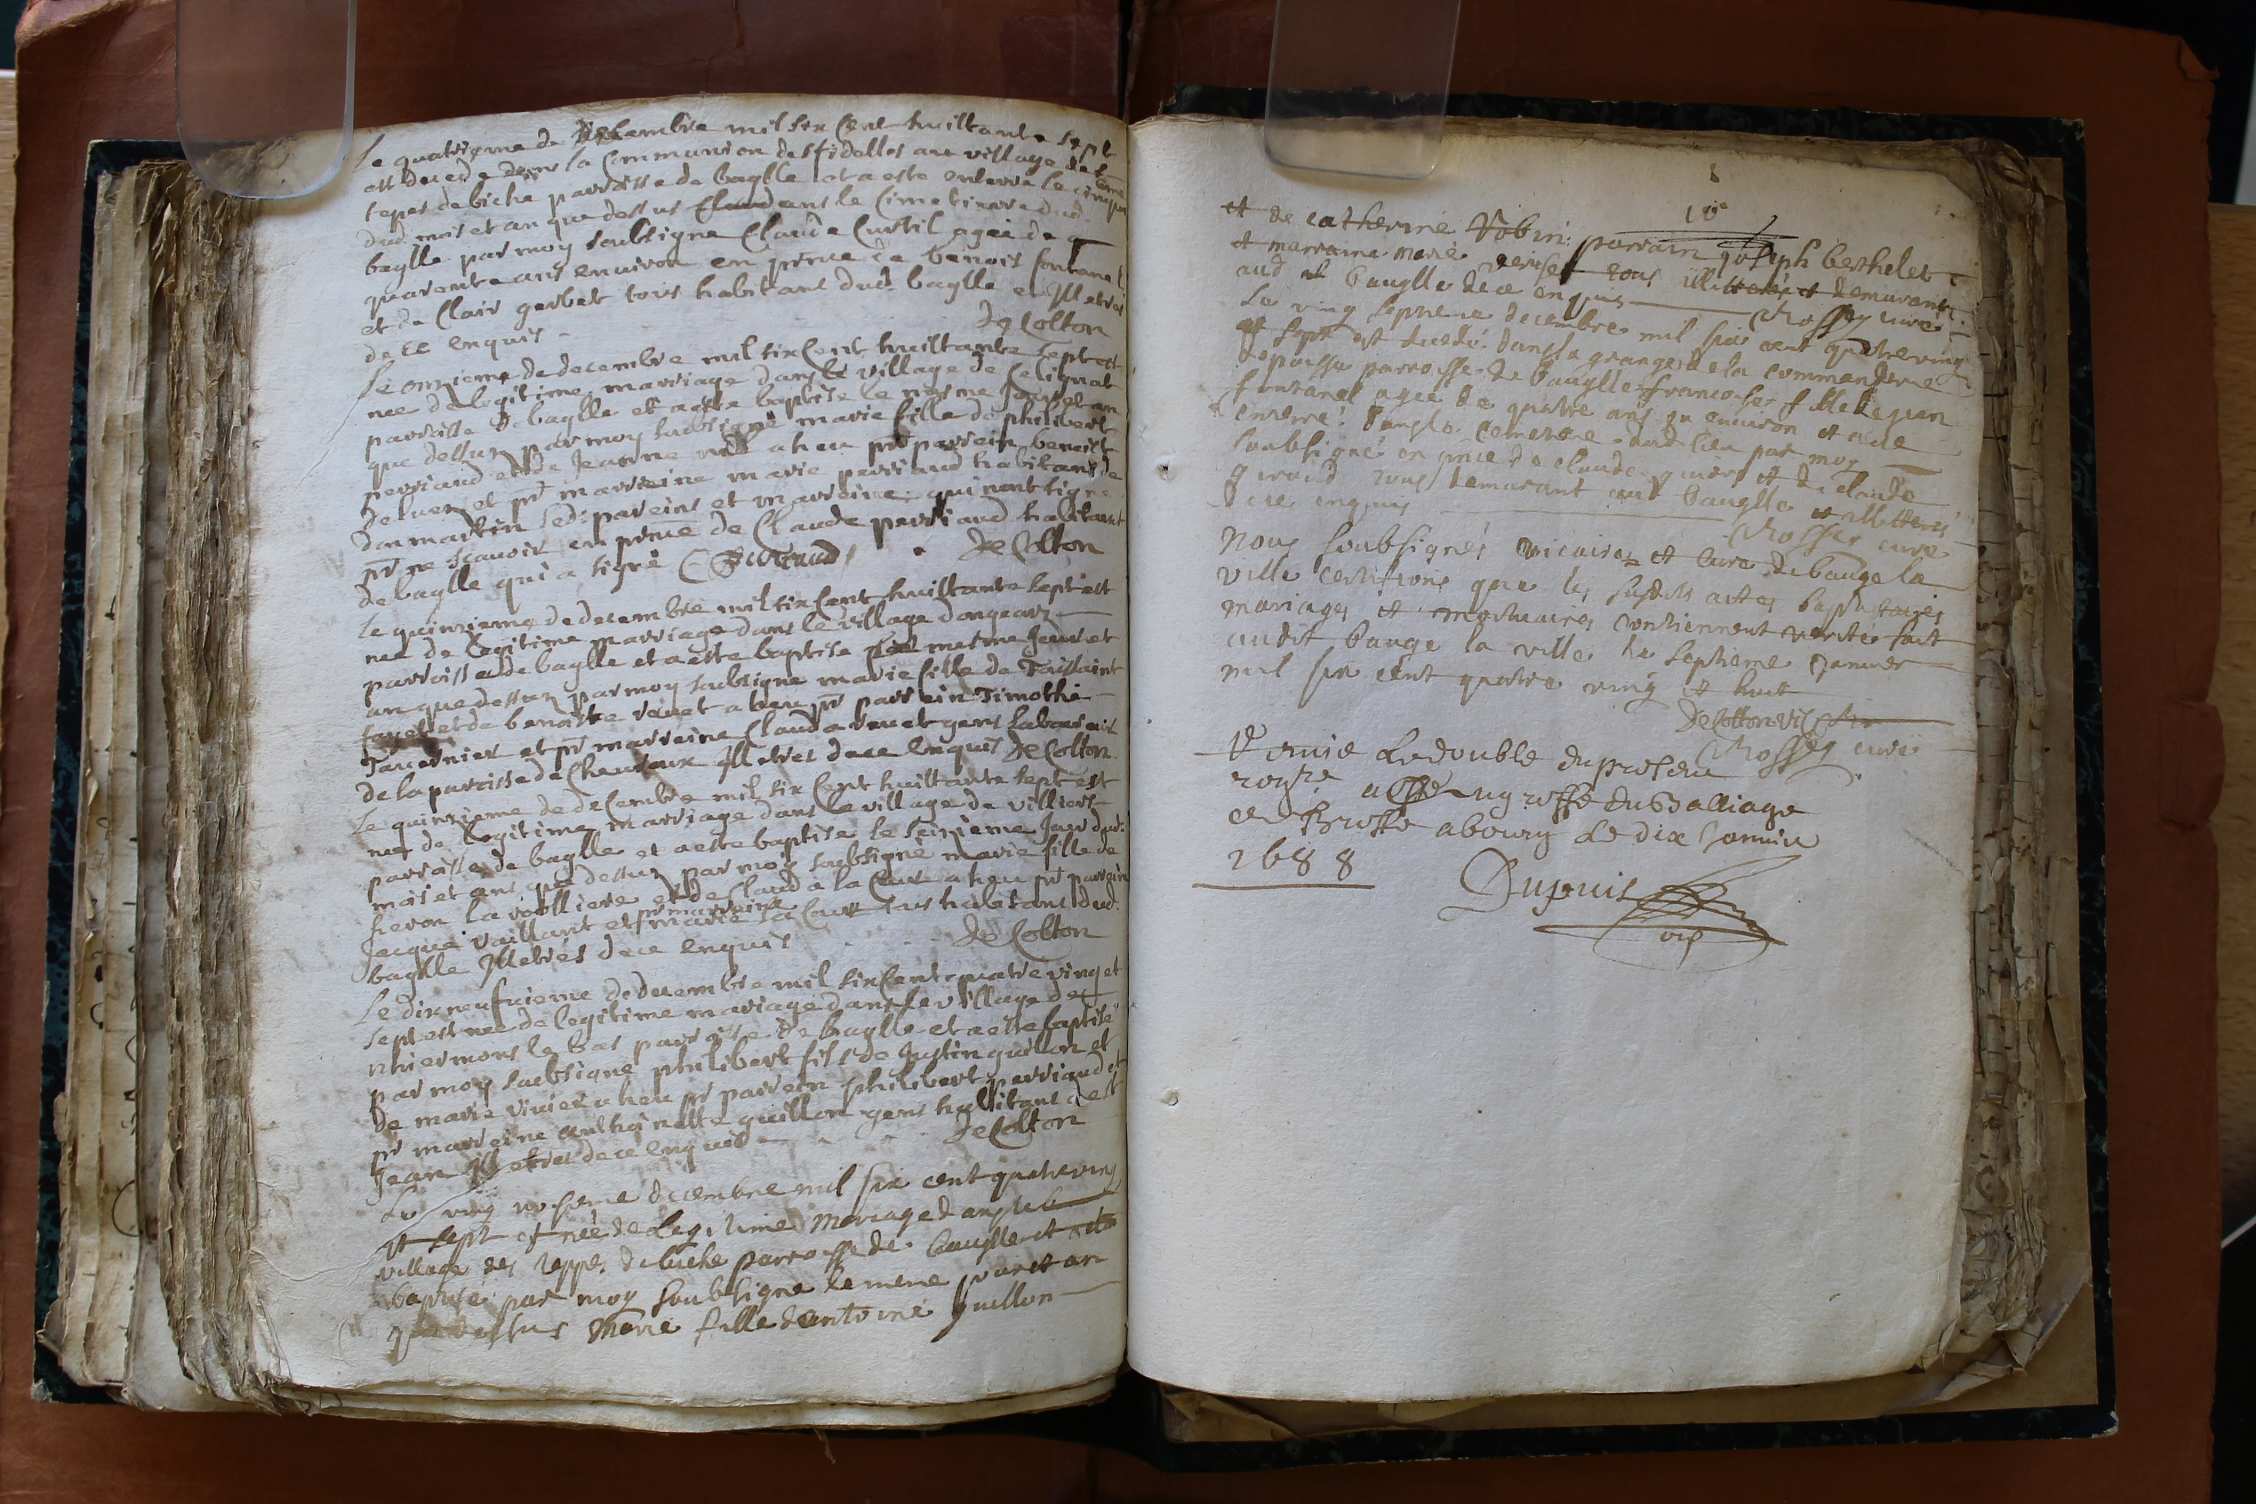 Le quatrieme de decembre mil six cent huittante sept
est decede dans la Communion des fidelles au village des
sepes de biche parroisse de baglle et a esté enterré le cinquieme
dud. mois et an que dessus dans le Cimetiere dud.
baglle par moy soubsigne Claude Curtil agée de
quarente ans environ en pnce de benoit fontanel
et de Clair gerbet tous habitans dud. baglle et Illetrés
de ce enquis
De Colton
Le onzieme de decembre mil six cent huittante sept est
nee de legitime marriage dans le village de Celignat
parroisse de baglle et a esté baptisé le mesme Jour et an
que dessus par moy soubsigné marie fille de philibert
perriaud et de Jeanne a heu pr parrein benoist
et pr marreine marie perriaud habitans de
dommartin led. pareins et marreine qui n'ont signé
pr ne scavoir en pnce de Claude perriaud habitant
de baglle qui a signé C Perreaud
De Colton
Le quinzieme de decembre mil six cent huittante sept est
nee de legitime marriage dans le village dongeard
parroisse de baglle et a esté baptisé le mesme Jour et
an que dessus par moy soubsigne marie fille de Toussaint
fayet et de benoitte venet a heu pr parrein Timothé
Tavernier et pr marreine Clauda venet gens laboureurs
de la parroisse de Chevroux Illetrés de ce enquis De Colton
Le quinzieme de decembre mil six cent huittante sept est
nee de legitime marriage dans le village de villiers
parroisse de baglle et a esté baptisé le seizieme Jour dud.
mois et ans que dessus par moy soubsigné marie fille de
la voilliere et de Clauda la Cour a heu pr parrein
Jacque vaillant et pr marreine marie la Cour tous habitans dud.
baglle Illetrés de ce enquis
De Colton
Le dix neufvieme de decembre mil six cent quatre vingt et
sept est né de legitime mariage dans le village de
le bas parroisse de baglle et a esté baptisé
par moy soubsigné philibert fils de Justin guillon et
de marie vivier a heu pr parrein philibert perriaud et
pr marreine anthoinette guillon gens habitans de st
Jean Illetrés de ce enquis
De Colton
Le ving decembre mil six cent quatre ving
et sept est née de legitime Mariage dans le
village des seppes de biche parroisse de bauglle et a esté
baptisé par moy soubsigné le meme jour et an
que dessus Marie fille d'antoine guillon
10e
et de catherine Robin parrain Joseph berthelet
et marraine marie tous illitterés et demurant
aud bauglle de ce enquis Rossey curé
Le ving septieme decembre mil six cent quatre ving
et sept est decedé dans la grange de la commenderie
parroisse de bauglle francoise fille de
fontanel agée de quatre ans ou environ et a été
enterré dans le cemetiere dud lieu par moy
soubsigné en pnce de claude et de claude
giraud tous demurant aud bauglle et illitterés
de ce enquis
Rossey curé
Nous soubsignés vicaire et curé de bauge la
ville certifions que les susdits actes baptistaires
mariages et mortuaires contiennent verité fait
audit bauge la ville le septieme Janvier
mil six cent quatre ving et huit
De Colton vic
Rossey curé
Remis le double du present
au greffe du Balliage
de Bresse a bourg le dix Janvier
1688
Dupuis